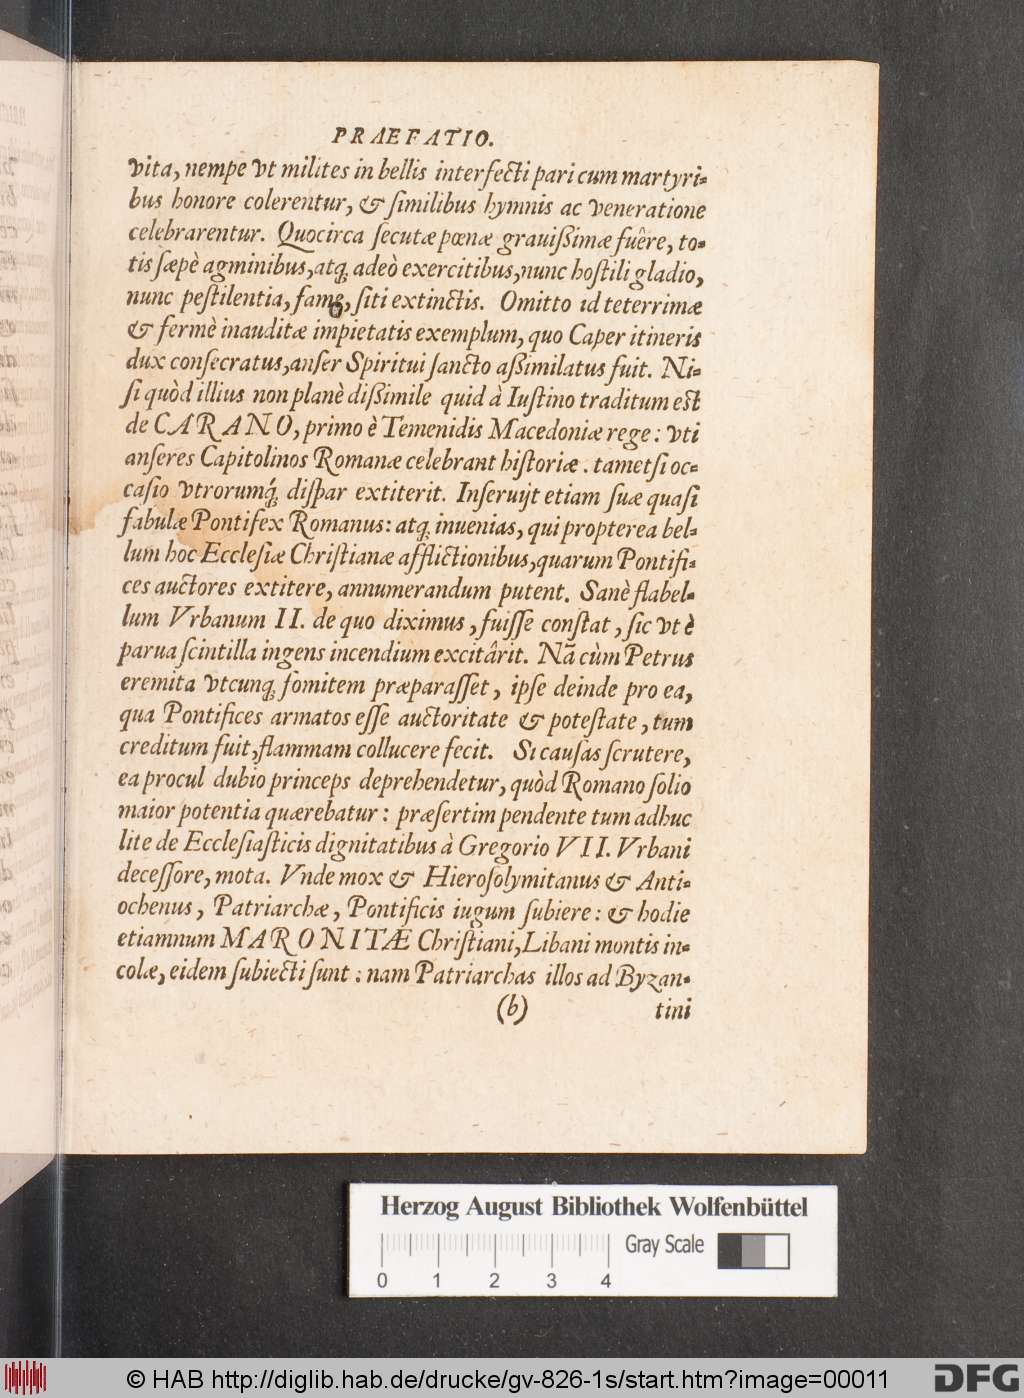 PRAEFATIO.
vita, nempe vt milites in bellis interfecti pari cum martyri-
bus honore colerentur, & ſimilibus hymnis ac veneratione
celebrarentur. Quocirca ſecutæ pœnæ grauißimæ fuêre, to-
tis ſæpè agminibus, atq; adeò exercitibus, nunc hoſtili gladio,
nunc peſtilentia, fame, ſiti extinctis. Omitto id teterrimæ
& fermè inauditæ impietatis exemplum, quo Caper itineris
dux conſecratus, anſer Spiritui ſancto aßimilatus fuit. Ni-
ſi quòd illius non planè dißimile quid à Iuſtino traditum est
de CARANO, primo è Temenidis Macedoniæ rege: vti
anſeres Capitolinos Romanæ celebrant hiſtoriæ. tametſi oc-
caſio vtrorumq́; diſpar extiterit. Inſeruijt etiam ſuæ quaſi
fabulæ Pontifex Romanus: atq; inuenias, qui propterea bel-
lum hoc Eccleſiæ Chriſtianæ afflictionibus, quarum Pontifi-
ces auctores extitere, annumerandum putent. Sanè flabel-
lum Vrbanum II. de quo diximus, fuiſſe conſtat, ſic vt è
parua ſcintilla ingens incendium excitârit. Nã cùm Petrus
eremita vtcunq; fomitem præparaſſet, ipſe deinde pro ea,
qua Pontifices armatos eſſe auctoritate & poteſtate, tum
creditum fuit, flammam collucere fecit. Si cauſas ſcrutere,
ea procul dubio princeps deprehendetur, quòd Romano ſolio
maior potentia quærebatur: præſertim pendente tum adhuc
lite de Eccleſiaſticis dignitatibus à Gregorio VII. Vrbani
deceſſore, mota. Vnde mox & Hieroſolymitanus & Anti-
ochenus, Patriarchæ, Pontificis iugum ſubiere: & hodie
etiamnum MARONITÆ Chriſtiani, Libani montis in-
colæ, eidem ſubiecti ſunt: nam Patriarchas illos ad Byzan-
(b) tini
Herzog August Bibliothek Wolfenbüttel
Gray Scale
0 1 2 3 4
© HAB http://diglib.hab.de/drucke/gv-826-1s/start.htm?image=00011
DFG